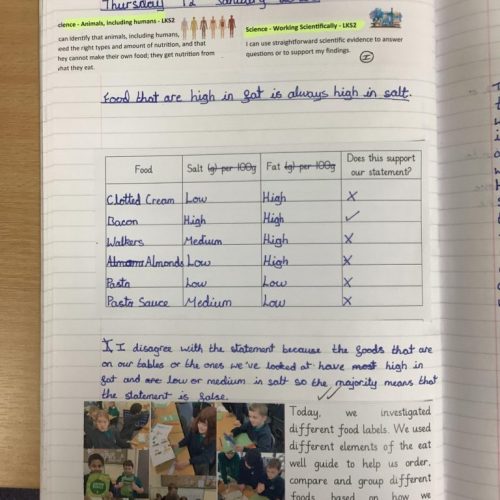 Thursday 12 January
Science - Animals, including humans - LKS2
can identify that animals, including humans,
need the right types and amount of nutrition, and that
they cannot make their own food; they get nutrition from
what they eat.
Science - Working Scientifically - LKS2
I can use straightforward scientific evidence to answer
questions or to support my findings.
I
Food that are high in fat is always high in salt.
Food Salt (g) per 100g Fat (g) per 100g Does this support
our statement?
Clotted Cream Low High X
Bacon High High ✓
Walkers Medium High X
Almonds Low High X
Pasta Low Low X
Pasta Sauce Medium Low X
I, I disagree with the statement because the foods that are
on our tables or the ones we've looked at have most high in
fat and are low or medium in salt so the majority means that
the statement is false.
Today, we investigated
different food labels. We used
different elements of the eat
well guide to help us order,
compare and group different
foods based on how we